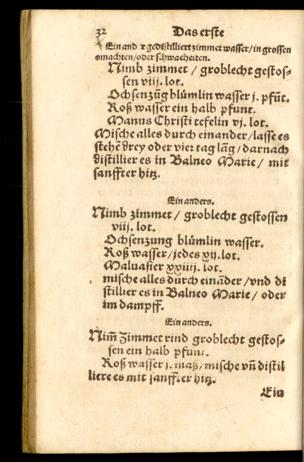 32 Das erste
Ein ander gedistilliert zimmet wasser/ in grossen
omachten/ oder schwacheiten.
Nimb zimmet / groblecht gestos-
sen viij. lot.
Ochsenzūg blůmlin wasser j. pfūt.
Roß wasser ein halb pfunt.
Manus Christi tefelin vj. lot.
Mische alles durch einander/ lasse es
stehē drey oder vier tag lāg/ darnach
distillier es in Balneo Marie/ mit
sanffter hitz.
Ein anders.
Nimb zimmet / groblecht gestossen
viij. lot.
Ochsenzung blůmlin wasser.
Roß wasser/ jedes xij. lot.
Maluasier xxiiij. lot.
mische alles durch eināder/ vnd di
stillier es in Balneo Marie/ oder
im dampff.
Ein anders.
Nim̄ Zimmet rind groblecht gestos-
sen ein halb pfunt.
Roß wasser j. maß/ mische vn̄ distil
liere es mit sanffter hitz.
Ein